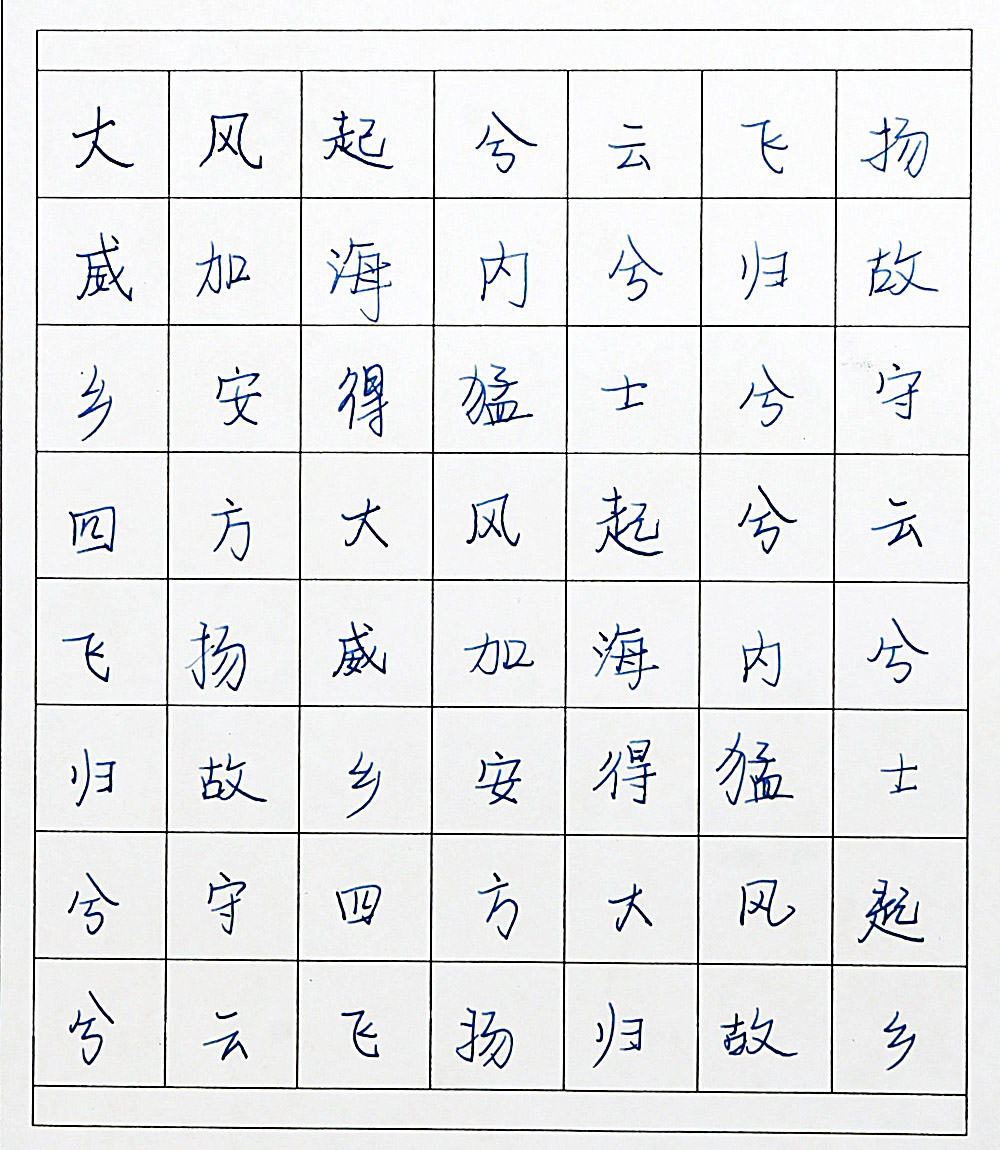 大风起兮云飞扬
威加海内兮归故
乡安得猛士兮守
四方大风起兮云
飞扬威加海内兮
归故乡安得猛士
兮守四方大风起
兮云飞扬归故乡